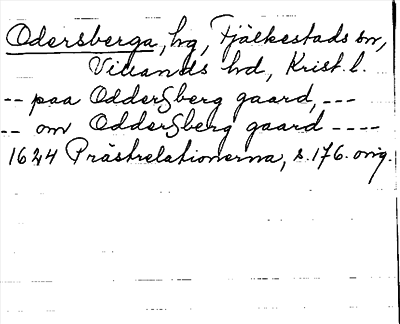 Odersberga, hg, Fjälkestads sn,
Villands hd, Krist. l.
-- paa OdderSberg gaard, ---
-- om OdderSberg gaard ----
1624 Prästrelationerna, s. 176. orig.